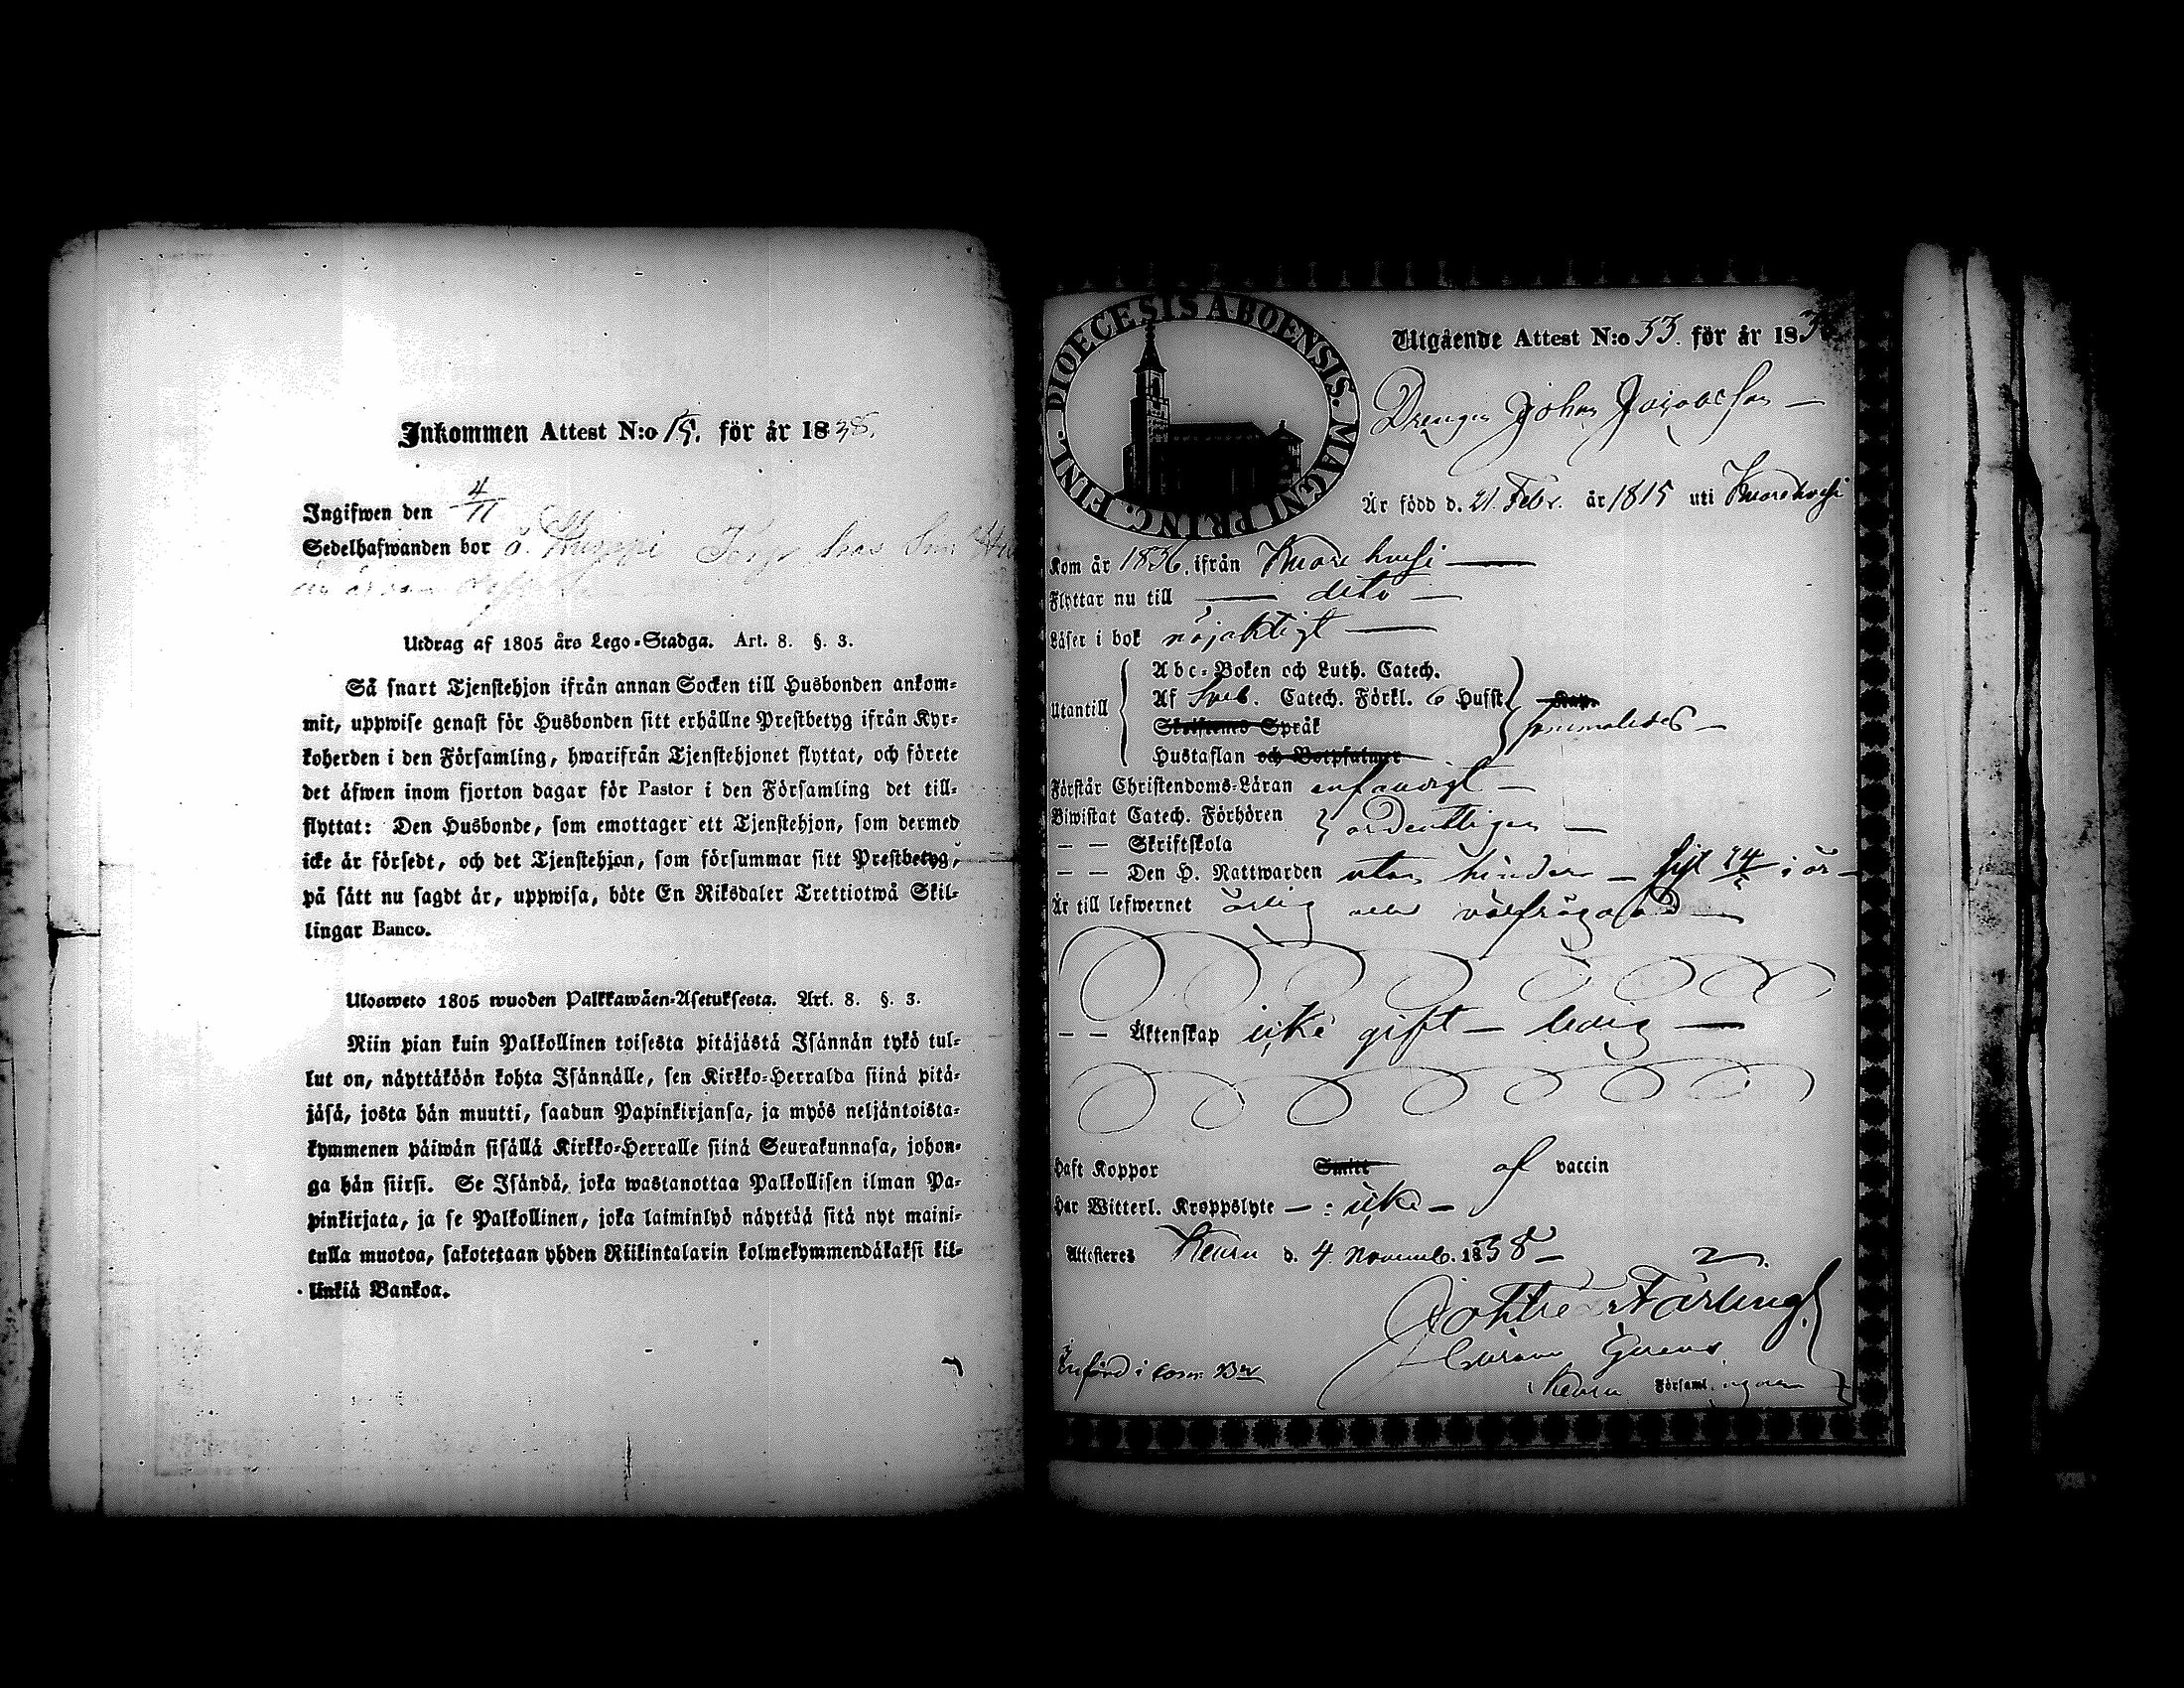 Inkommen Attest N:o 15. för år 1838.
Ingifwen den 4/11
Sedelhafwanden bor å
Utdrag af 1805 års Lego-Stadga. Art. 8. §. 3.
Så snart Tjenstehjon ifrån annan Socken till Husbonden ankom-
mit, uppwise genast för Husbonden sitt erhållne Prestbetyg ifrån Kyr-
koherden i den Församling, hwarifrån Tjenstehjonet flyttat, och förete
det äfwen inom fjorton dagar för Pastor i den Församling det till-
flyttat: Den Husbonde, som emottager ett Tjenstehjon, som dermed
icke är försedt, och det Tjenstehjon, som försummar sitt Prestbetyg,
på sätt nu sagdt är, uppwisa, böte En Riksdaler Trettiotwå Skil-
lingar Banco.
Ulosweto 1805 wuoden Palkkawäen-Asetuksesta. Art. 8. §. 3.
Niin pian kuin Palkollinen toisesta pitäjästä Isännän tykö tul-
lut on, näyttäköön kohta Isännälle, sen Kirkko-Herralda siinä pitä-
jäsä, josta hän muutti, saadun Papinkirjansa, ja myös neljäntoista-
kymmenen päiwän sisällä Kirkko-Herralle siinä Seurakunnasa, johon-
ga hän siirsi. Se Isändä, joka wastanottaa Palkollisen ilman Pa-
pinkirjata, ja se Palkollinen, joka laiminlyö näyttää sitä nyt maini-
tulla muotoa, sakotetaan yhden Riikintalarin kolmekymmendäkaksi kil-
linkiä Bankoa.
DIOECESIS ABOENSIS. MAGNI PRINC. FINL.
Utgående Attest N:o 33. för år 183
Drengen Johan Jacobsson
Är född d. 21 Febr. år 1815 uti Kuorehvesi
Kom år 1836. ifrån Kuorehvesi
Flyttar nu till dito
Läser i bok nöjaktigt
Utantill
Abc-Boken och Luth. Catech.
Af Sveb. Catech. Förkl. 6 Hufst.
Skriftenes Språk
Hustaflan och Botpsalmer
sammaledes
Förstår Christendoms-Läran enfaldigt
Biwistat Catech. Förhören
ordentligen
— — Skriftskola
— — Den H. Nattwarden utan hinder — sist i år
Är till lefwernet ärlig och välfrägdad
— — Äktenskap icke gift — ledig
Haft Koppor Smitt af vaccin
Har Witterl. Kroppslyte — : icke —
Attesteras Keuru d. 4 Novemb. 1838
Införd i
Keuru Församl.